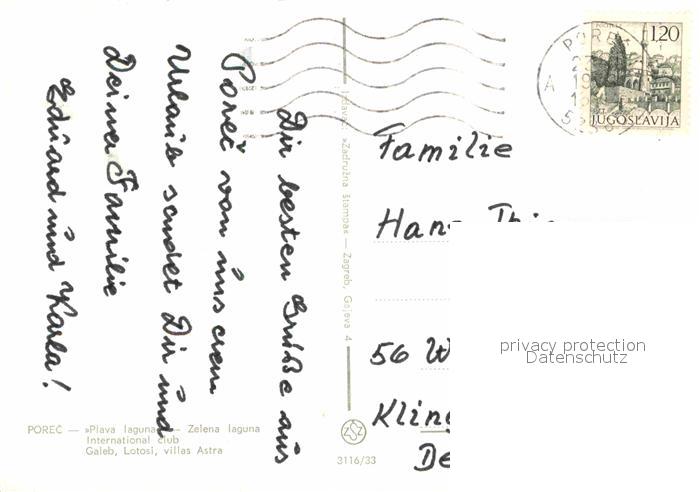 Die besten Grüße aus
Poreč von unserem
Urlaub sendet Dir und
Deiner Familie
Eduard und Karla!
POREČ — »Plava laguna« — Zelena laguna
International club
Galeb, Lotosi, villas Astra
Izdavač: »Zadružna štampa« — Zagreb, Gajeva 4
3116/33
POREČ
A
1,20
JUGOSLAVIJA
Familie
Hans
56 W
Kling
De
privacy protection
Datenschutz